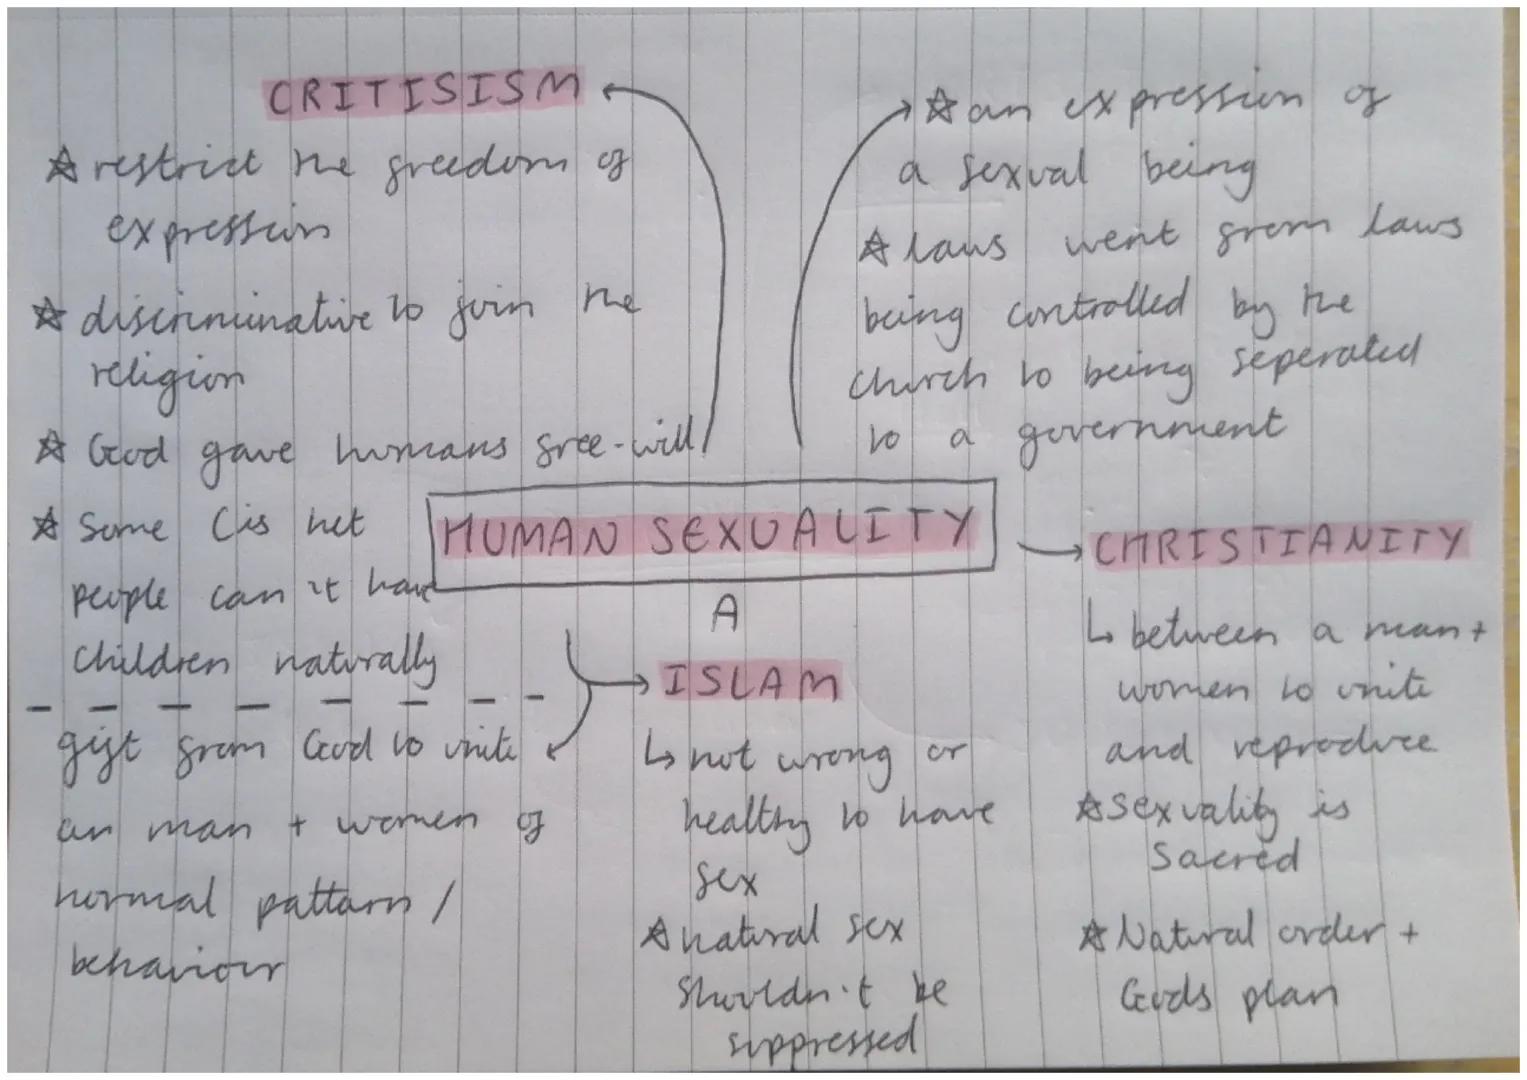 CRITISISM
☆ restrict the freedom of
expression
☆ discriminative to join the
religion
☆ God gave humans free-will
☆ Some Cis het
people can't have
children naturally
☆ an expression of
a sexual being
☆ laws went from laws
being controlled by the
church to being seperated
to a government
HUMAN SEXUALITY
A
CHRISTIANITY
↳ between a man +
women to unite
and reproduce
☆ Sexuality is
Sacred
☆ Natural order +
Gods plan
ISLAM
↳ not wrong or
healthy to have
sex
☆ natural sex
shouldn't be
suppressed
gift from God to unite
an man + women of
normal pattarn /
behaviour